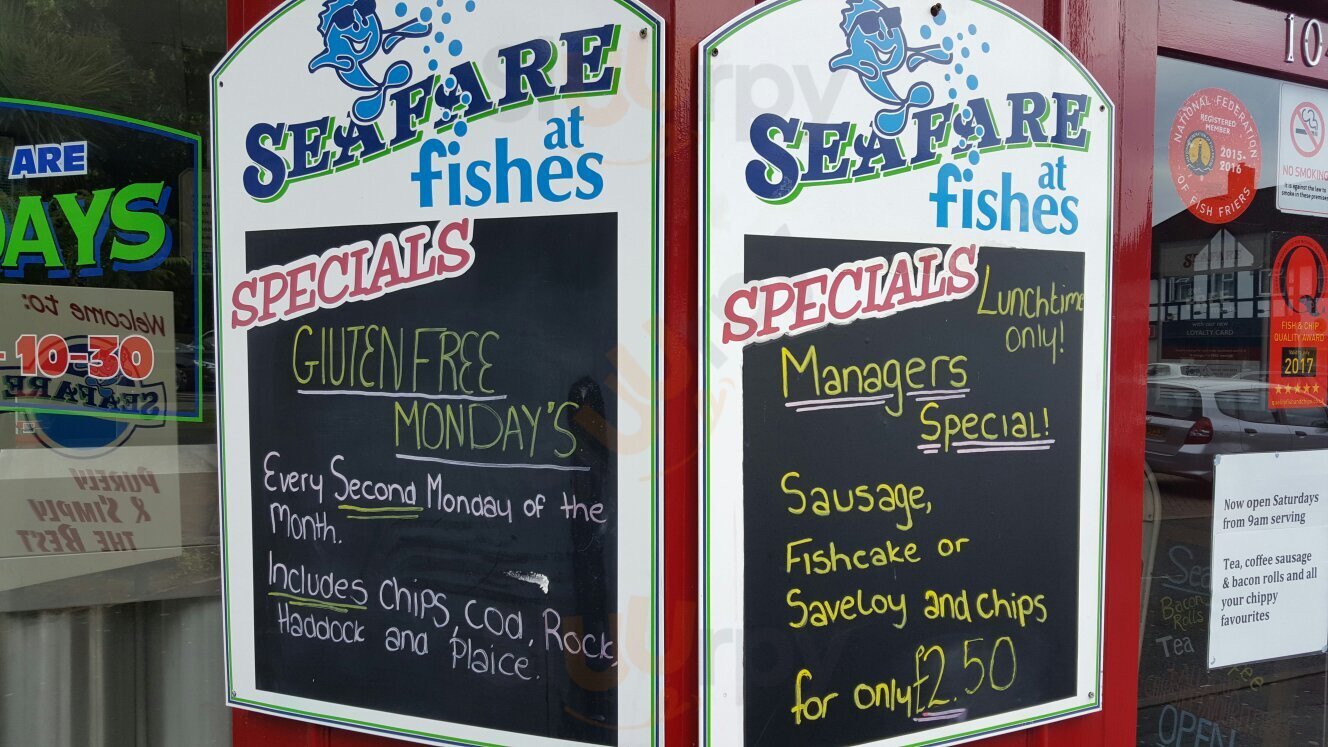 ARE
DAYS
Welcome to:
- 10-30
SEAFARE
PURELY
& SIMPLY
THE BEST
SEAFARE
at
fishes
SPECIALS
GLUTEN FREE
MONDAY'S
Every Second Monday of the
Month.
Includes Chips, Cod, Rock,
Haddock and Plaice.
SEAFARE
at
fishes
SPECIALS
Lunchtime
only!
Managers
Special!
Sausage,
Fishcake or
Saveloy and chips
for only £2.50
10
NATIONAL FEDERATION
REGISTERED
MEMBER
2015-
2016
OF FISH FRIERS
NO SMOKING
It is against the law to
smoke in these premises
SEAFARE
with our new
LOYALTY CARD
FISH & CHIP
QUALITY AWARD
2017
Now open Saturdays
from 9am serving
Tea, coffee sausage
& bacon rolls and all
your chippy
favourites
Bacon
Rolls
Tea
OPEN